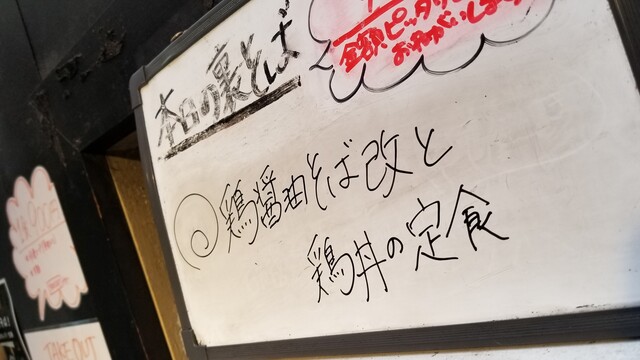 本日の裏そば
金額ピッタリで
おねがいします
鶏醤油そば改と
鶏丼の定食
TAKE OUT